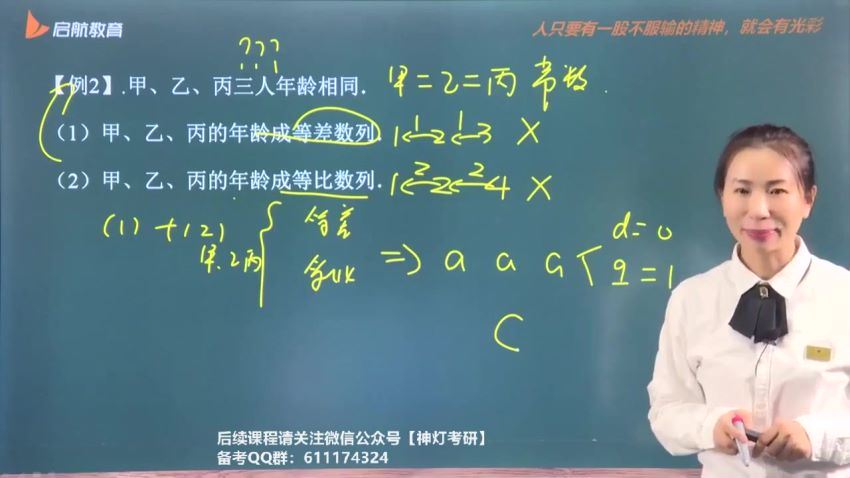 启航教育
人只要有一股不服输的精神，就会有光彩
? ? ?
【例2】.甲、乙、丙三人年龄相同. 甲=乙=丙 常数.
（1）甲、乙、丙的年龄成等差数列. 1 1 2 1 3 X
（2）甲、乙、丙的年龄成等比数列. 1 2 2 2 4 X
(1)+(2) { 等差
甲.乙丙 等比 => a a a
d=0
q=1
C
后续课程请关注微信公众号【神灯考研】
备考QQ群：611174324